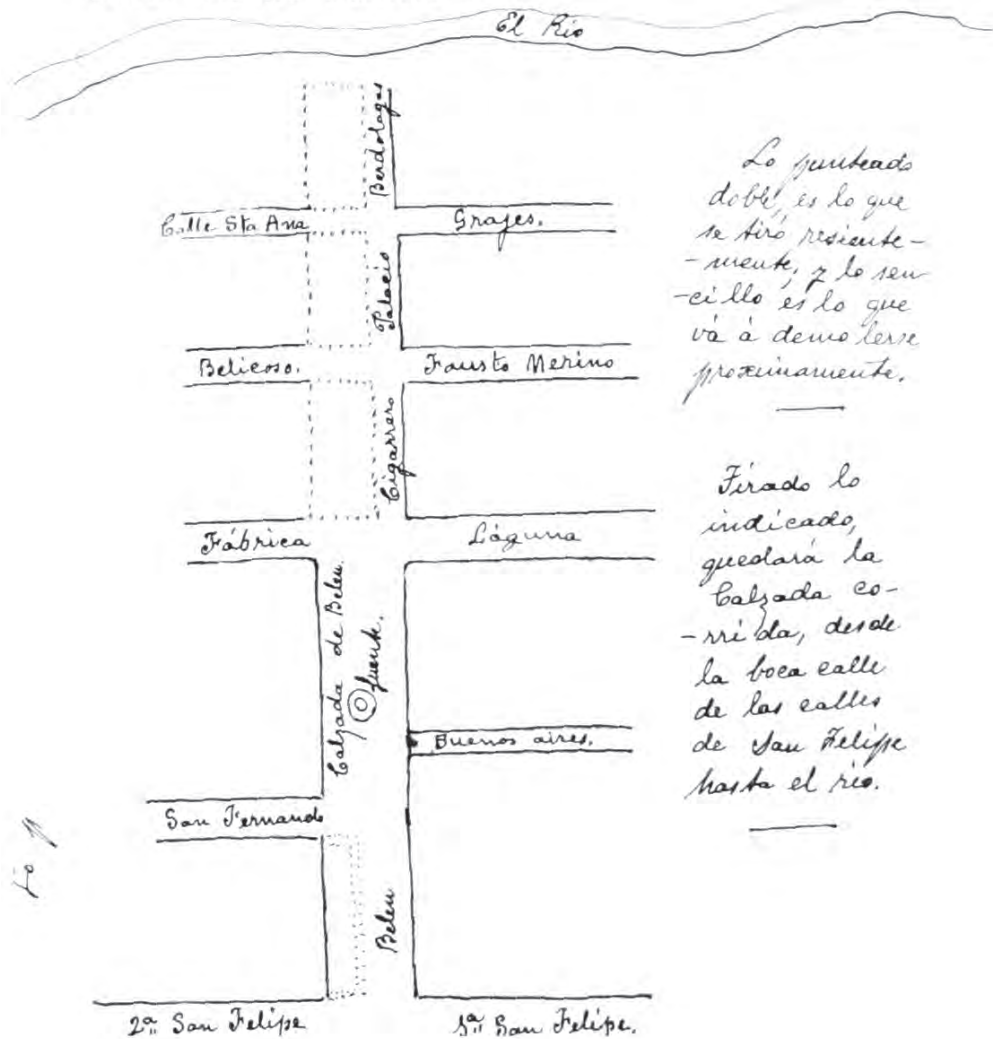 El Río
Berdolagas
Calle Sta Ana
Grajes.
Palacio
Belicoso.
Fausto Merino
Cigarrero
Fábrica
Láguna
Calzada de Belen.
fuente.
Buenos aires.
San Fernando
Belen
2ª San Felipe
1ª San Felipe.
Lo punteado
doble, és lo que
se tiró resiente-
-mente, y lo sen-
-cillo és lo que
vá á demolerse
proximamente.
Tirado lo
indicado,
quedará la
Calzada co-
-rrida, desde
la boca calle
de las calles
de San Felipe
hasta el rio.